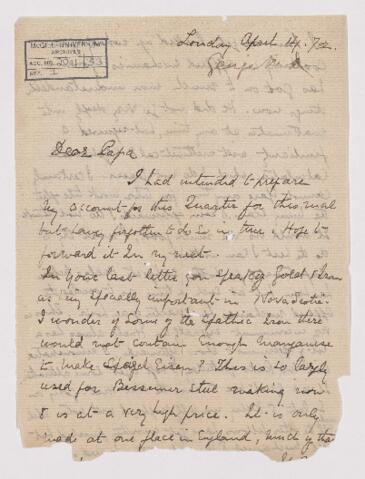 McGILL UNIVERSITY
ARCHIVES
ACC. NO.
REF. 1
London April 14. 72.
George
Dear Papa
I had intended to prepare
my account for this Quarter for this mail
but having forgotten to do so in time I hope to
forward it in my next.
In your last letter you speak of Gold & Iron
as specially important in Nova Scotia
I wonder if some of the Spathic Iron there
would not contain enough manganese
to make Spiegel Eisen? This is so largely
used for Bessemer Steel making now
& is at a very high price. It is only
made at one place in England, much of the